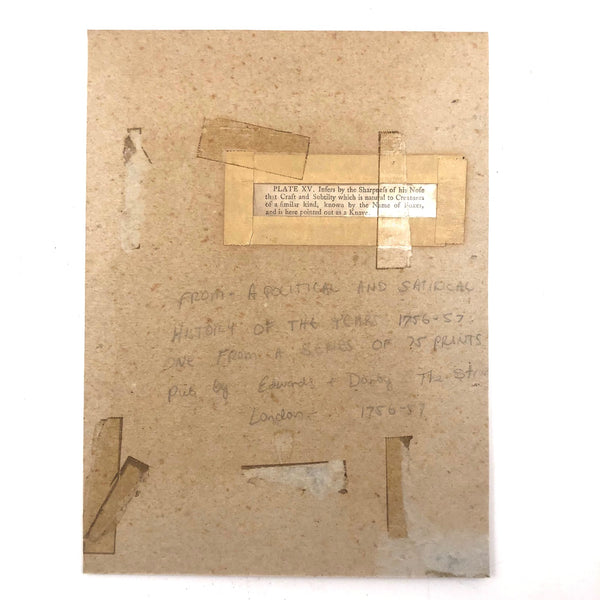 PLATE XV. Infers by the Sharpneſs of his Noſe
that Craft and Subtilty which is natural to Creatures
of a ſimilar kind, known by the Name of Foxes,
and is here pointed out as a Knave.
FROM - A POLITICAL AND SATIRICAL
HISTORY OF THE YEARS 1756-57.
ONE FROM A SERIES OF 75 PRINTS
Pub by Edwards + Darby The
London - 1756-57